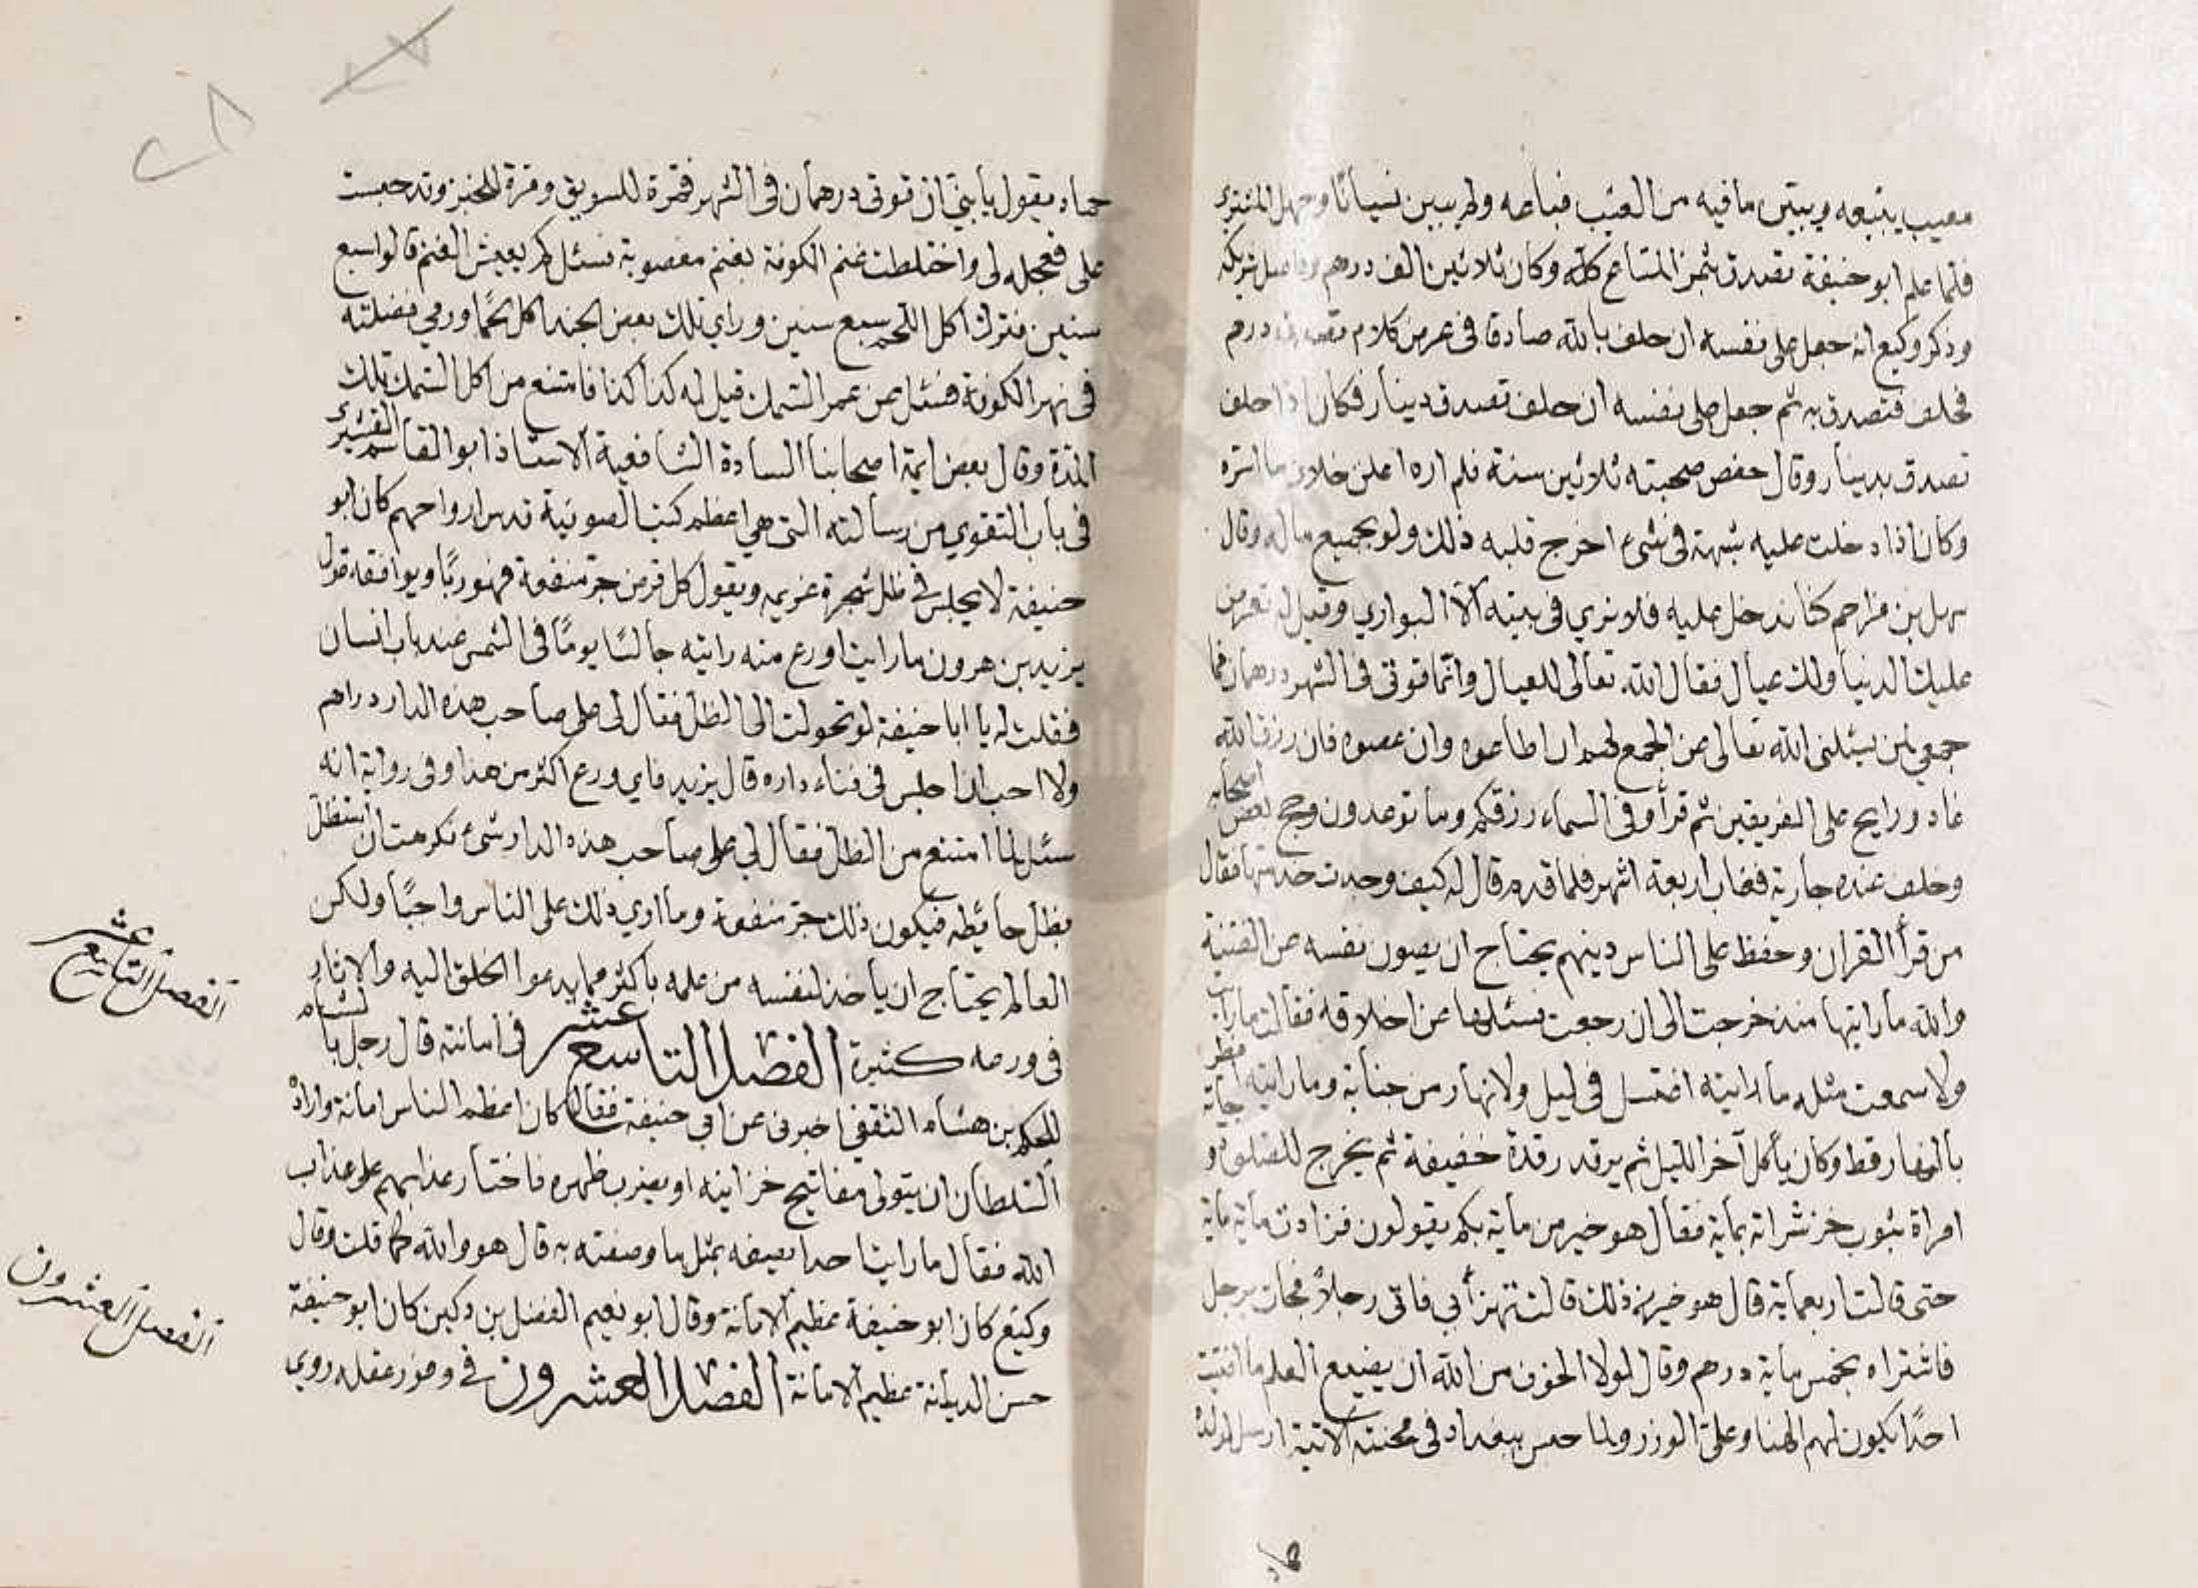 معيب يبيعه ويبين ما فيه من العيب فباعه ولم يبين نسيانا وجهل المشتري
فلما علم ابو حنيفة تصدق بثمن المتاع كله وكان ثلاثين الف درهم وفاصل شريكه
وذكر وكيع انه جعل على نفسه ان حلف بالله صادقا في عرض كلامه تصدق بدرهم
فحلف فتصدق به ثم جعل على نفسه ان حلف تصدق دينار فكان اذا حلف
تصدق بدينار وقال حفص صحبته ثلاثين سنة فلم اره اعلن خلاف ما اسره
وكان اذا دخلت عليه شبهة في شيء اخرج قلبه ذلك ولو بجميع ماله وقال
سهل بن مزاحم كنا ندخل عليه فلا نري في بيته الا البواري وقيل له تعرض
عليك الدنيا ولك عيال فقال الله تعالى للعيال وانما قوتي في الشهر درهمان فما
جمعي لمن يسئلني الله تعالى عن الجمع لهم ان اطاعوه وان عصوه فان رزق الله
غاد ورايح على الفريقين ثم قرأ وفي السماء رزقكم وما توعدون وحج بعض اصحابه
وخلف عنده جارية فغاب اربعة اشهر فلما قدم قال له كيف وجدت خدمتها فقال
من قرأ القران وحفظ على الناس دينهم يحتاج ان يصون نفسه عن الفتنة
والله ما رايتها منذ خرجت الى ان رجعت فسئلها عن اخلاقه فقالت ما رايت
ولا سمعت مثله ما رايته اغتسل في ليل ولا نهار من جنابة وما رايته افطر
بالنهار قط وكان يأكل آخر الليل ثم يرقد رقدة خفيفة ثم يخرج للصلوة وجاته
امراة بثوب خز شراته بماية فقال هو خير من ماية بكم يقولون فزادت ماية ماية
حتى قالت اربعماية قال هو خير من ذلك قالت تهزأ بي فاتى رجلا فجات برجل
فاشتراه بخمس ماية درهم وقال لولا الخوف من الله ان يضيع العلم ما افتيت
احدا يكون لهم الهنا وعلي الوزر ولما حبس ببغداد في محنته الاتية ارسل لولده
حماد
حماد يقول يا بني ان قوتي درهمان في الشهر فمرة للسويق ومرة للخبز وقد حبست
على فعجله لي واختلطت غنم الكوفة بغنم مغصوبة فسئل كم يعيش الغنم قالوا سبع
سنين فترك اكل اللحم سبع سنين وراى تلك بعض الجند اكل لحما ورمي فضلته
في نهر الكوفة فسئل عن عمر السمك فقيل له كذا كذا فامتنع من اكل السمك تلك
المدة وقال بعض ايمة اصحابنا السادة الشافعية الاستاذ ابو القاسم القشيري
في باب التقوي من رسالته التي هي اعظم كتب الصوفية قدس ارواحهم كان ابو
حنيفة لا يجلس في ظل شجرة غريمه ويقول كل قرض جر منفعة فهو ربا ويوافقه قول
يزيد بن هرون ما رايت اورع منه رايته جالسا يوما في الشمس عند باب انسان
فقلت له يا ابا حنيفة لو تحولت الى الظل فقال لي على صاحب هذه الدار دراهم
ولا احب ان اجلس في فناء داره قال يزيد فاي ورع اكثر من هذا وفي رواية انه
سئل لما امتنع من الظل فقال لي على صاحب هذه الدار شيء فكرهت ان استظل
بظل حائطه فيكون ذلك جر منفعة وما اري ذلك على الناس واجبا ولكن
العالم يحتاج ان ياخذ لنفسه من علمه باكثر مما يدعوا الخلق اليه والاثار
في ورعه كثيرة الفصل التاسع عشر في امانته قال رجل بالشام
للحكم بن هشام الثقفي اخبرني عن ابي حنيفة فقال كان اعظم الناس امانة واراد
السلطان ان يتولى مفاتيح خزاينه او يضرب ظهره فاختار عذابهم على عذاب
الله فقال ما رايت احدا يصفه بمثل ما وصفته به قال هو والله كما قلت وقال
وكيع كان ابو حنيفة عظيم الامانة وقال ابو نعيم الفضل بن دكين كان ابو حنيفة
حسن الديانة عظيم الامانة الفصل العشرون في وفور عقله روي
الفصل التاسع عشر
الفصل العشرون